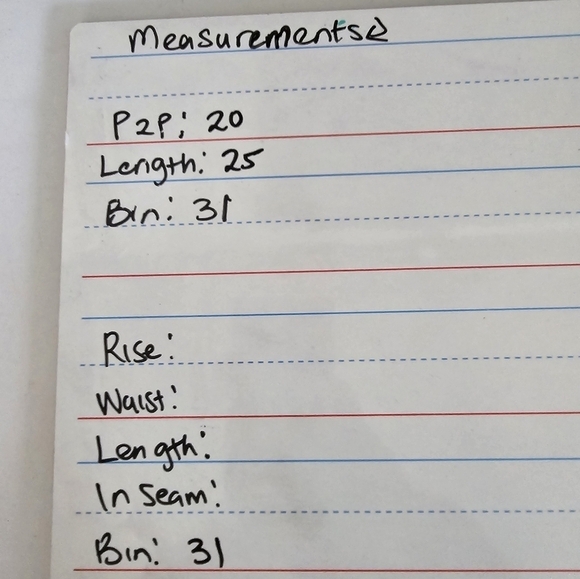 Measurements
P2P: 20
Length: 25
Bin: 31
Rise:
Waist:
Length:
In Seam:
Bin: 31